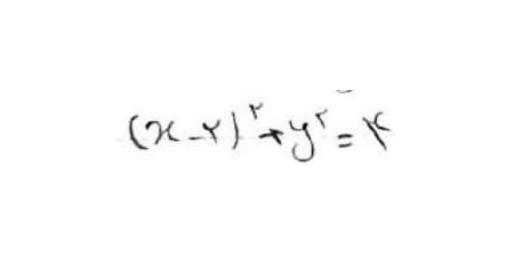 (x-۲)^۲+y^۲=۴